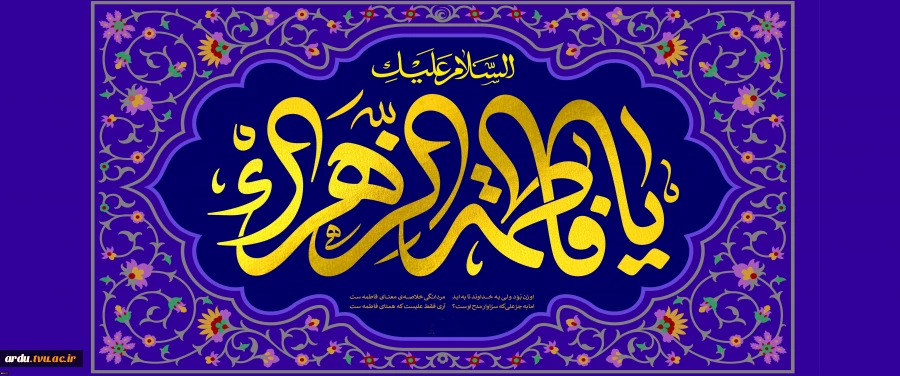 السَّلامُ عَلَيْكِ
يا فاطمة الزهراء
او زن بُوَد ولی به خداوند تا به ابد مردانگی خلاصه‌ی معنای فاطمه ست
اما به جز علی که سزاوار مدح اوست؟ آری فقط علیست که همتای فاطمه ست
ardu.tvu.ac.ir